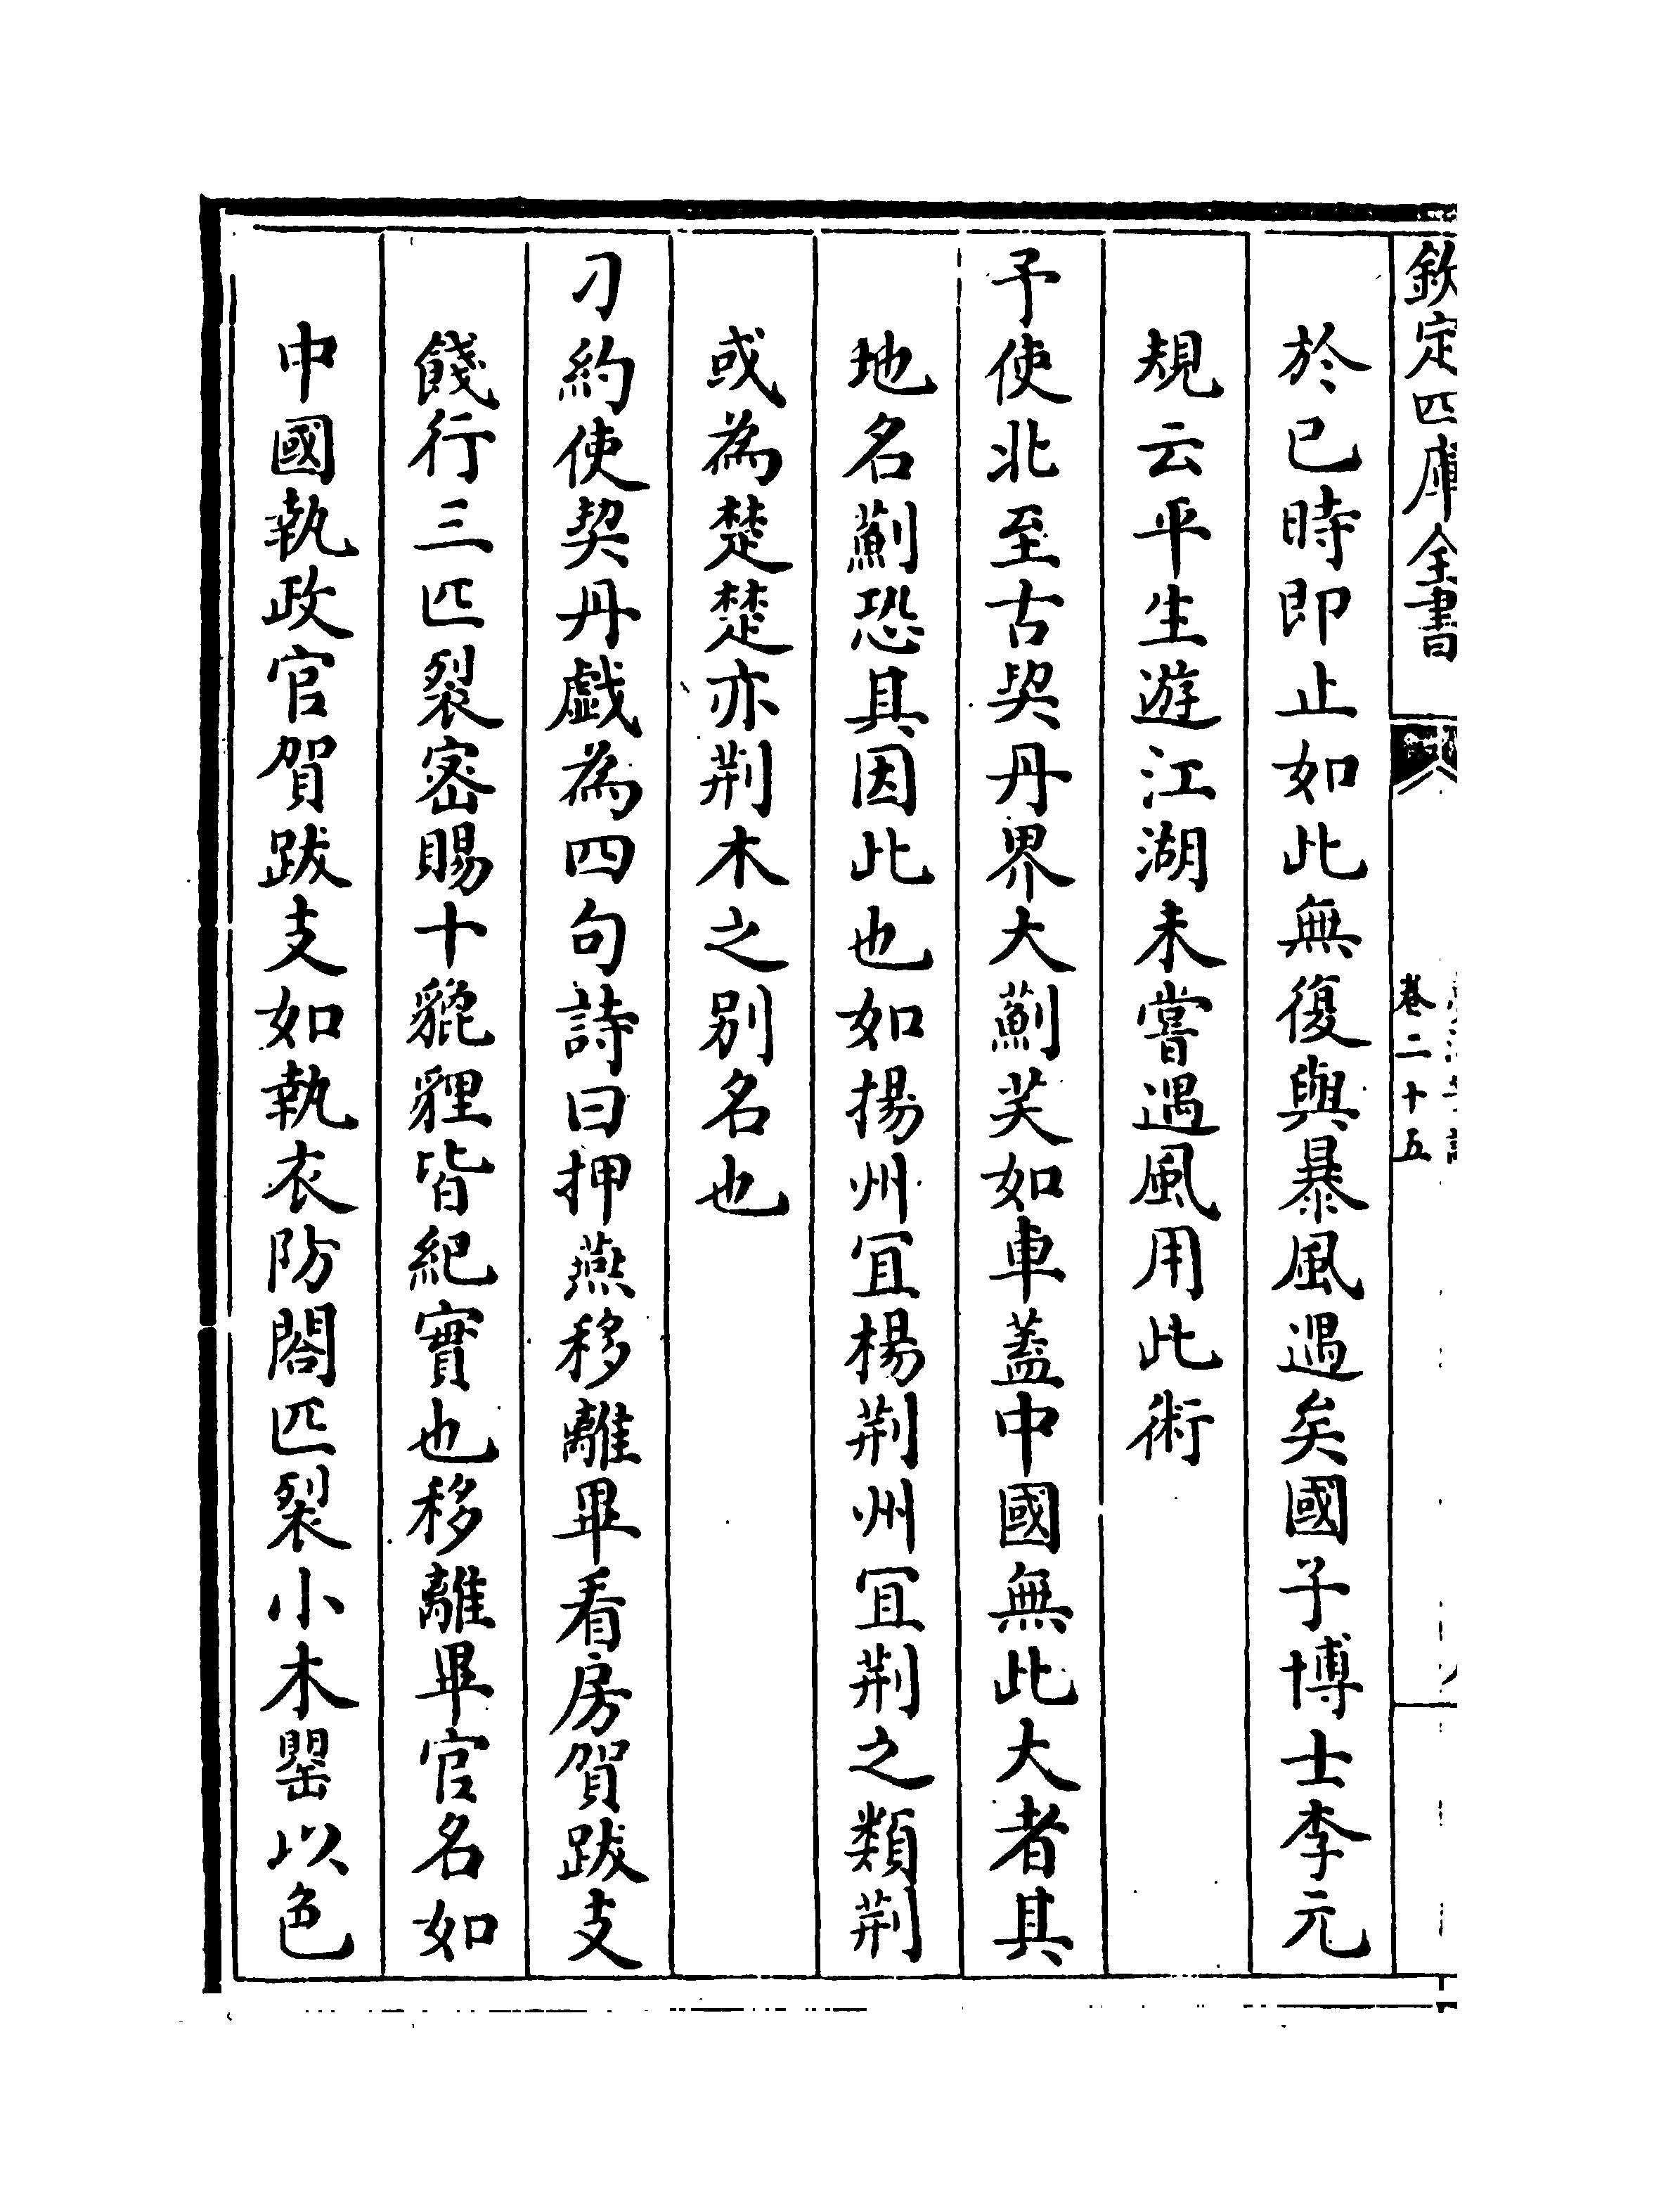 欽定四庫全書
卷二十五
於巳時即止如此無復與暴風遇矣國子博士李元
規云平生遊江湖未嘗遇風用此術
予使北至古契丹界大薊芺如車蓋中國無此大者其
地名薊恐其因此也如揚州宜楊荆州宜荆之類荆
或為楚楚亦荆木之别名也
刁約使契丹戯為四句詩曰押燕移離畢看房賀跋支
餞行三匹裂宻賜十貔貍皆紀實也移離畢官名如
中國執政官賀跋支如執衣防閤匹裂小木罌以色